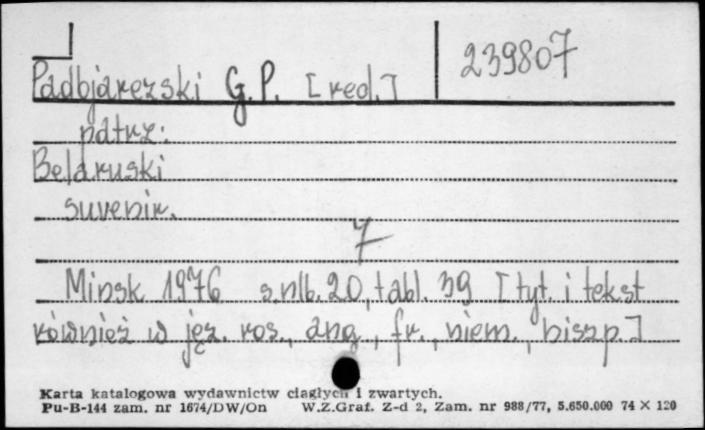 239807
Padbjarezski G.P. [red.]
patrz:
Belaruski
suvenir.
7
Minsk 1976 s.nlb. 20, tabl. 39 [tyt. i tekst
również w jęz. ros., ang., fr., niem., hiszp.]
Karta katalogowa wydawnictw ciągłych i zwartych.
Pu-B-144 zam. nr 1674/DW/On W.Z.Graf. Z-d 2, Zam. nr 988/77, 5.650.000 74 × 120